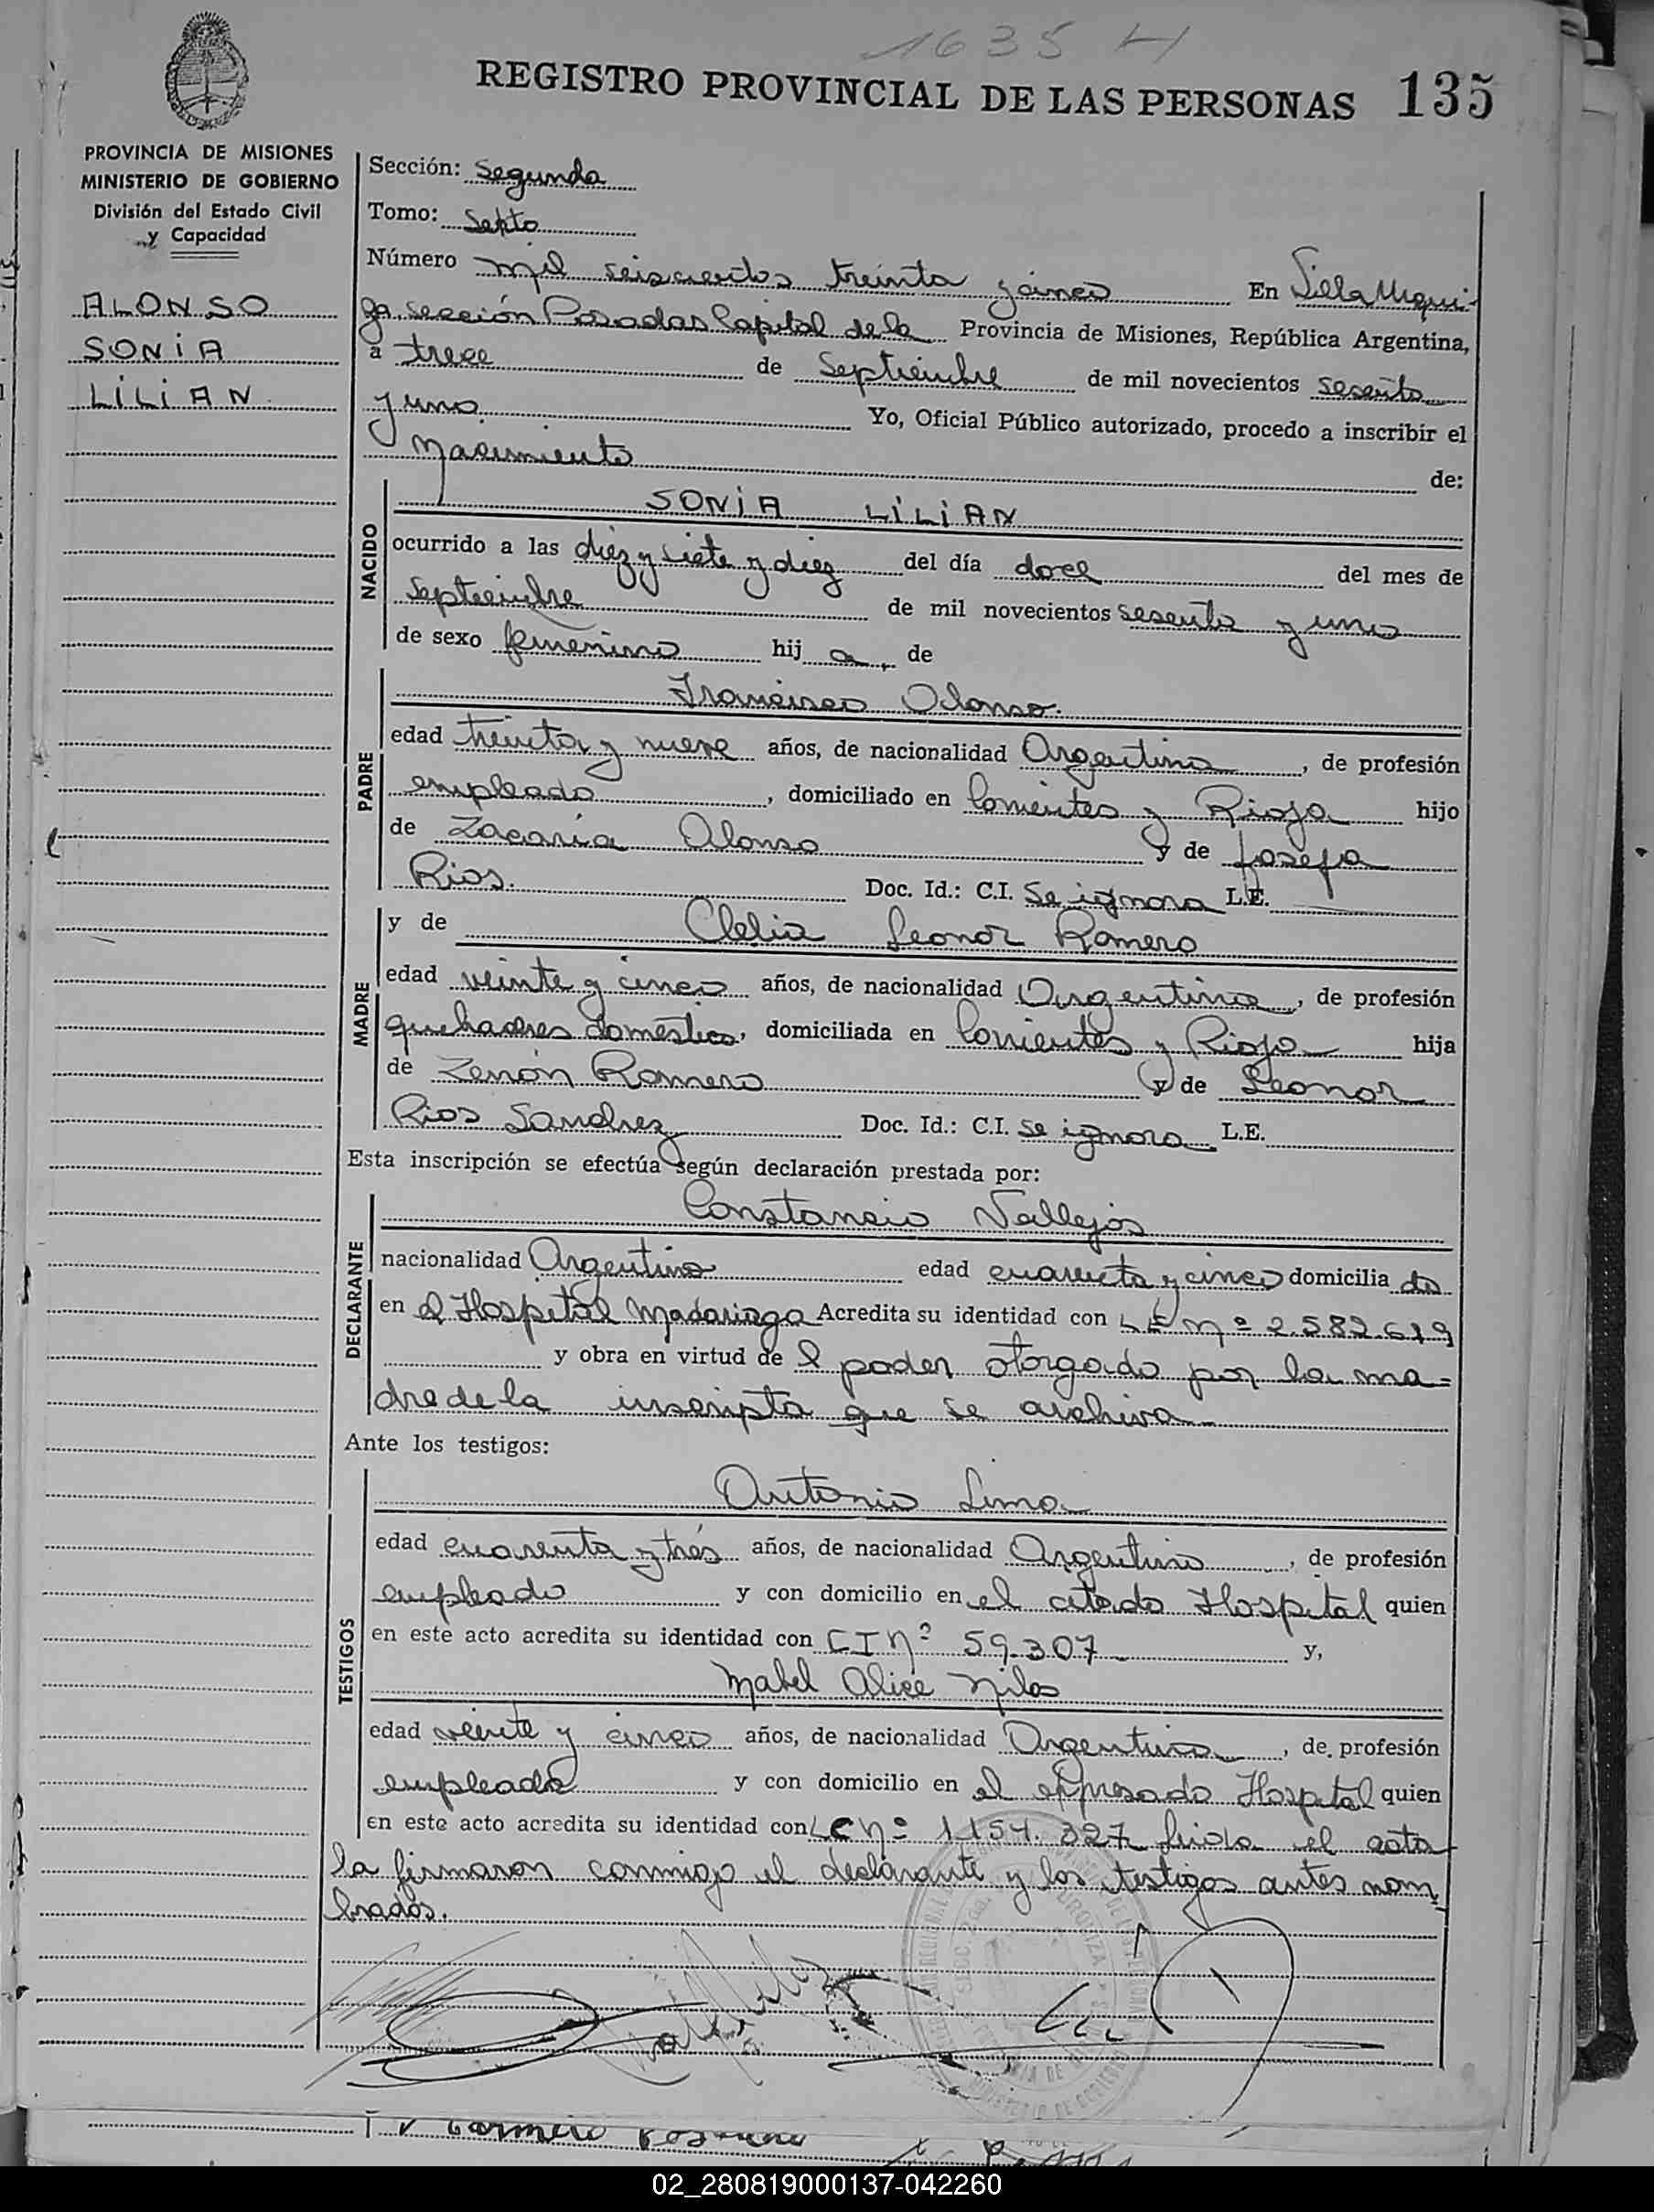 1635 H
REGISTRO PROVINCIAL DE LAS PERSONAS 135
PROVINCIA DE MISIONES
MINISTERIO DE GOBIERNO
División del Estado Civil
y Capacidad
ALONSO
SONIA
LILIAN
Sección: Segunda
Tomo: Septo
Número mil seiscientos treinta y cinco En Villa Urqui-
za Sección Posadas Capital de la Provincia de Misiones, República Argentina,
a trece de Septiembre de mil novecientos sesenta
y uno Yo, Oficial Público autorizado, procedo a inscribir el
Nacimiento de:
NACIDO
SONIA LILIAN
ocurrido a las diez y siete y diez del día doce del mes de
Septiembre de mil novecientos sesenta y uno
de sexo femenino hij a, de
PADRE
Francisco Alonso.
edad treinta y nueve años, de nacionalidad Argentina, de profesión
empleado, domiciliado en Corrientes y Rioja hijo
de Zacaria Alonso y de Josefa
Rios. Doc. Id.: C.I. Se ignora L.E.
MADRE
y de Clelia Leonor Romero
edad veinte y cinco años, de nacionalidad Argentina, de profesión
quehaceres domestico, domiciliada en Corrientes y Rioja hija
de Zenón Romero y de Leonor
Rios Sandrez Doc. Id.: C.I. se ignora L.E.
Esta inscripción se efectúa según declaración prestada por:
DECLARANTE
Constancio Vallejos
nacionalidad Argentino edad cuarenta y cinco domicilia do
en el Hospital Madariaga Acredita su identidad con LE nº 2.582.619
y obra en virtud de l poder otorgado por la ma=
dre de la inscripta que se archiva
Ante los testigos:
TESTIGOS
Antonio Lima
edad cuarenta y tres años, de nacionalidad Argentino, de profesión
empleado y con domicilio en el citado Hospital quien
en este acto acredita su identidad con CI nº 59.307 y,
Mabel Alice
edad veinte y cinco años, de nacionalidad Argentina, de profesión
empleada y con domicilio en el expresado Hospital quien
en este acto acredita su identidad con LC nº 1154.327 leida el acta
la firmaron conmigo el declarante y los testigos antes nom
brados.
02_280819000137-042260